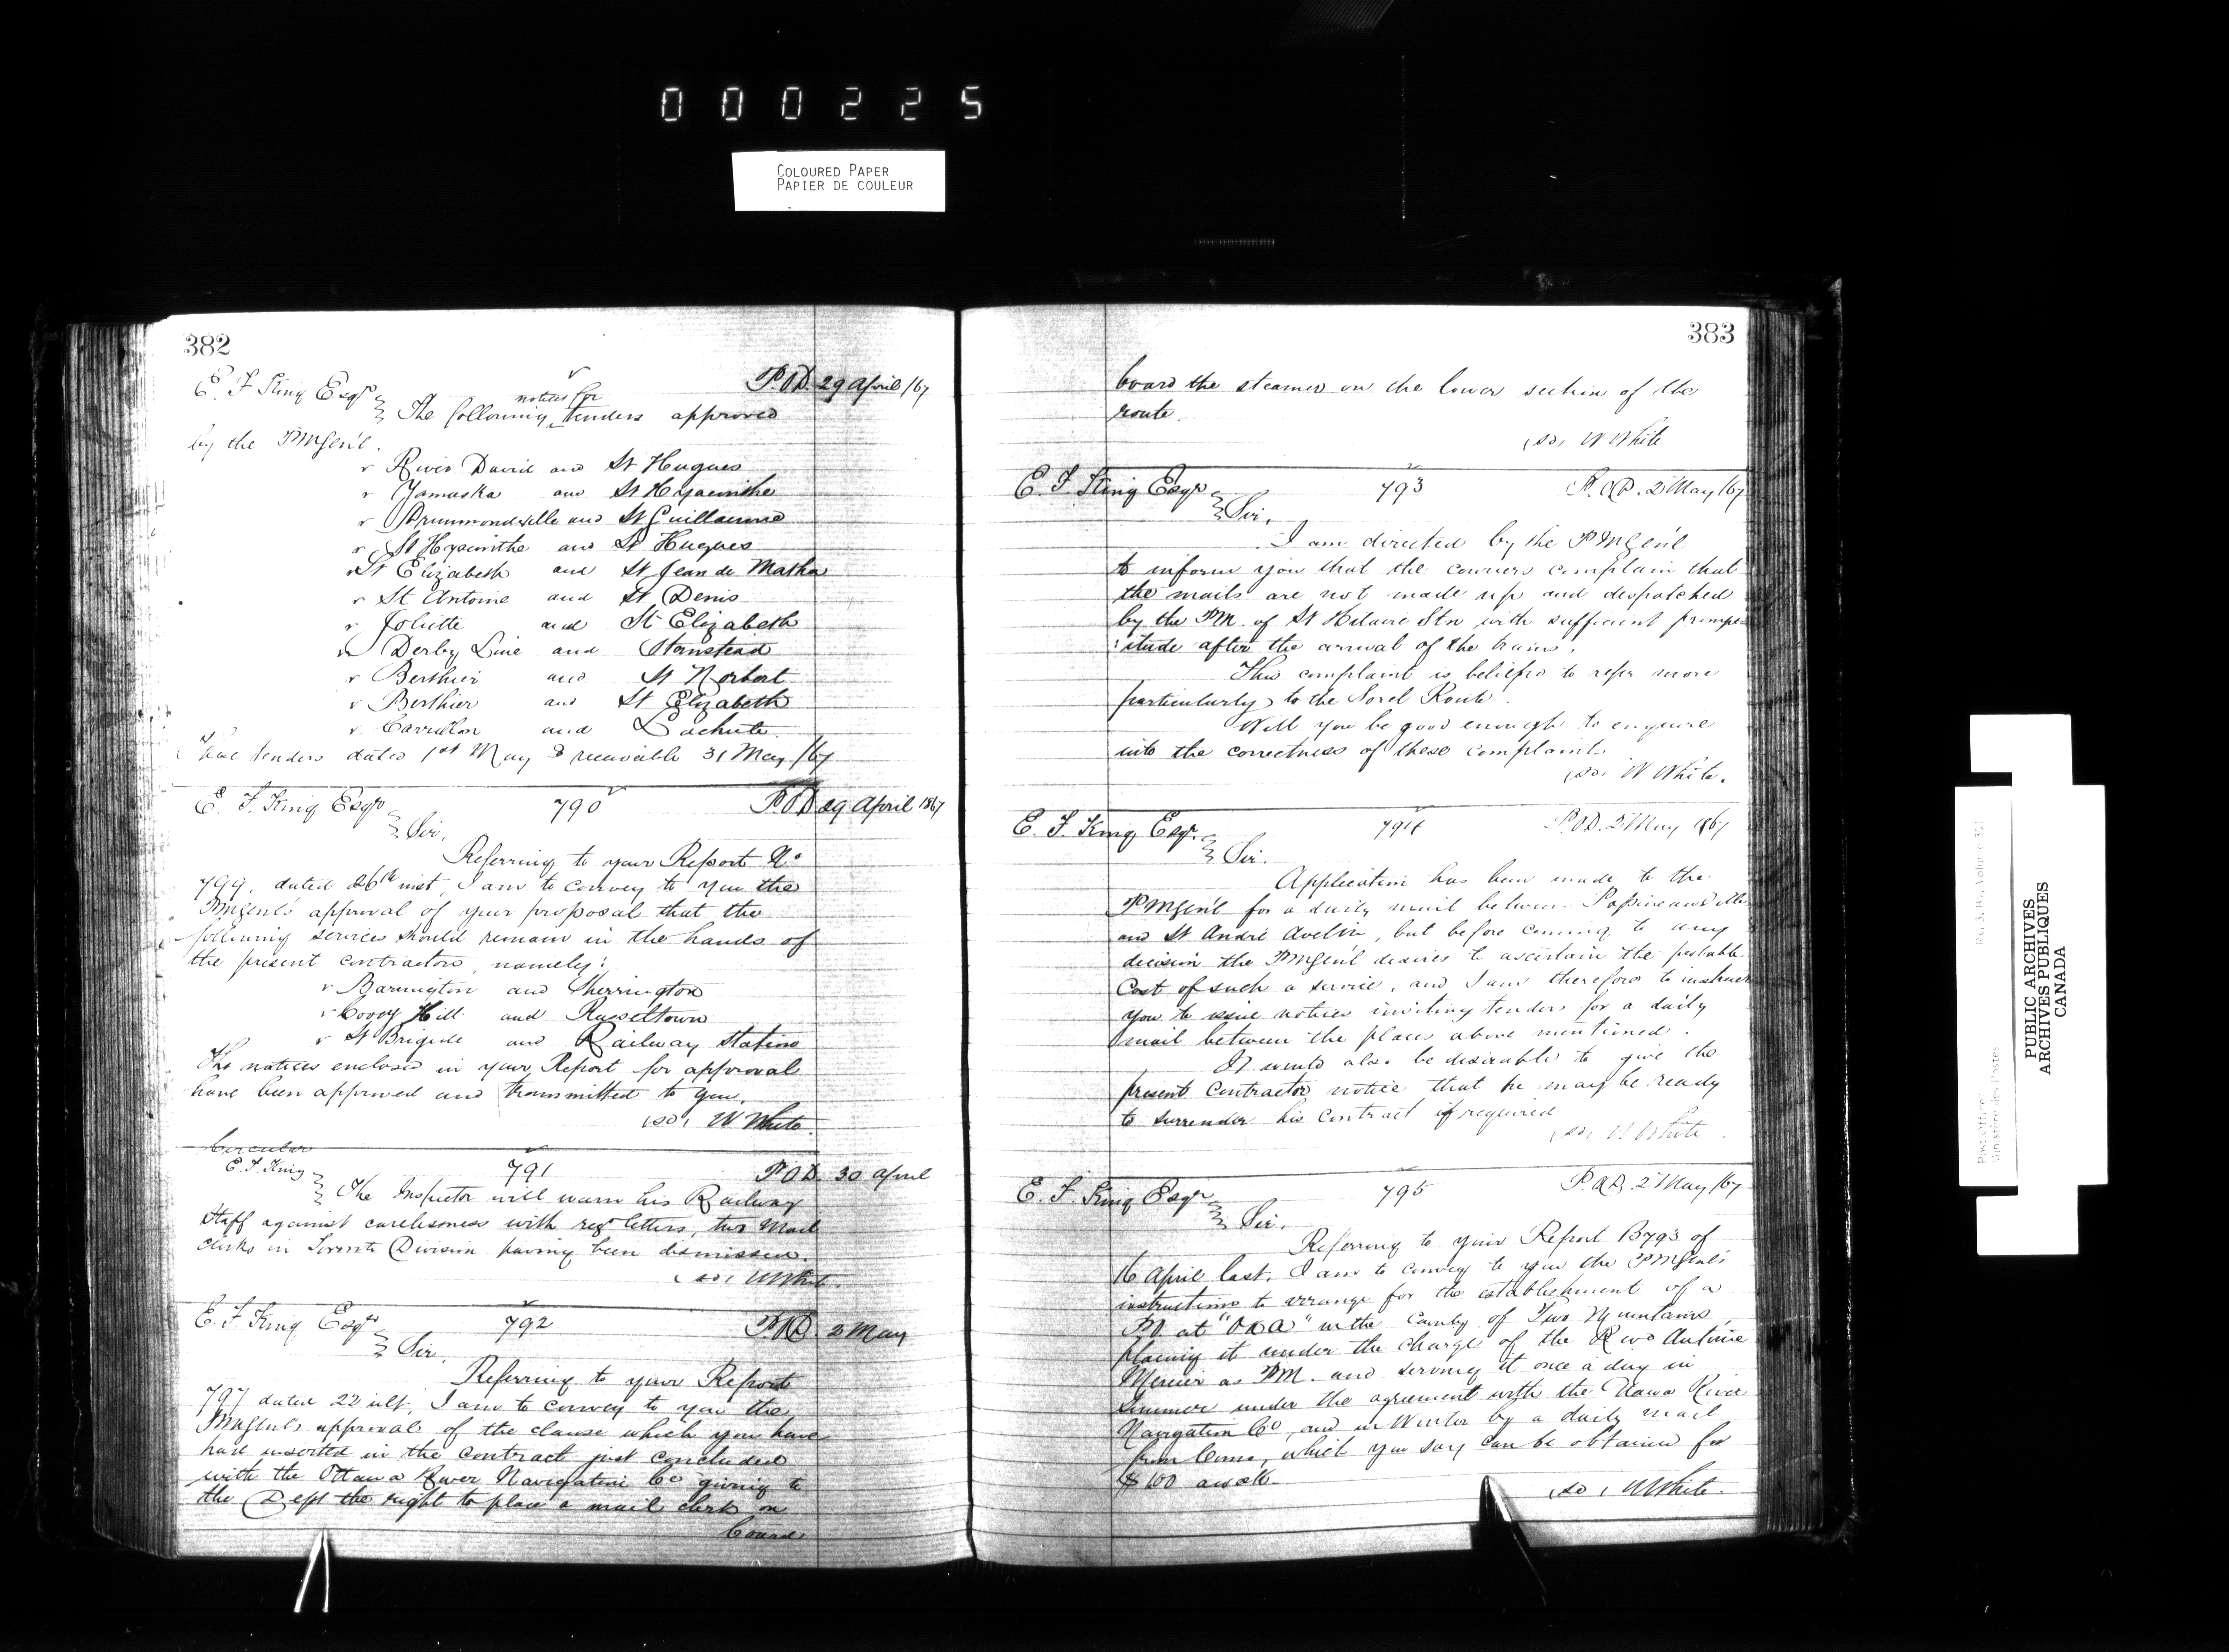 000225
COLOURED PAPER
PAPIER DE COULEUR
382
E. F. King Esqr P.O.D. 29 April /67
notices for
The following tenders approved
by the PMGen'l.
River David and St Hugues
Yamaska and St Hyacinthe
Drummondville and St Guillaume
St Hyacinthe and St Hugues
St Elizabeth and St Jean de Matha
St Antoine and St Denis
Joliette and St Elizabeth
Derby Line and Stanstead
Berthier and St Norbert
Berthier and St Elizabeth
Carrillon and Lachute
tenders dated 1st May & receivable 31 May /67
E. F. King Esqr 790 P.O.D 29 April 1867
Sir,
Referring to your Report No
799, dated 26th inst, I am to convey to you the
PMGenl's approval of your proposal that the
following services should remain in the hands of
the present contractors, namely:
Barrington and Sherrington
Covey Hill and Russeltown
St Brigide and Railway Station
The notices enclosed in your Report for approval
have been approved and transmitted to you.
(sd) W White.
Circular
E. F. King 791 P.O.D. 30 April
The Inspector will warn his Railway
Staff against carelessness with regd letters, two Mail
clerks in Toronto Division having been dismissed.
(sd) W White
E. F. King Esqr 792 P.O.D. 2 May
Sir,
Referring to your Report
797 dated 22 ult, I am to convey to you the
PMGenl's approval of the clause which you have
had inserted in the contract just concluded
with the Ottawa River Navigation Co giving to
the Dept the right to place a mail clerk on
board
383
board the steamer on the lower section of the
route.
(sd) W White
E. F. King Esqr 793 P.O.D. 2 May /67
Sir,
I am directed by the PMGen'l
to inform you that the couriers complain that
the mails are not made up and despatched
by the PM. of St Hilaire Stn with sufficient prompt
:itude after the arrival of the trains.
This complaint is believed to refer more
particularly to the Sorel Route.
Will you be good enough to enquire
into the correctness of these complaints.
(sd) W White.
E. F. King Esqr. 794 P.O.D. 2 May 1867
Sir.
Application has been made to the
PMGen'l for a daily mail between Papineauville
and St André Avelin, but before coming to any
decision the PMGen'l desires to ascertain the probable
Cost of such a service, and I am therefore to instruct
you to issue notices inviting tenders for a daily
mail between the places above mentioned.
It would also be desirable to give the
present Contractor notice that he may be ready
to surrender his contract if required
(sd) W White.
E. F. King Esqr 795 P.O.D. 2 May /67
Sir.
Referring to your Report B793 of
16 April last, I am to convey to you the PMGenl's
instructions to arrange for the establishment of a
P.O. at "OKA" in the County of Two Mountains,
placing it under the charge of the Revd Antoine
Mercier as PM. and serving it once a day in
Summer under the agreement with the Ottawa River
Navigation Co, and in Winter by a daily mail
from Como, which you say can be obtained for
$100
(sd) W White.
PUBLIC ARCHIVES
ARCHIVES PUBLIQUES
CANADA
Post Office
Ministère des Postes